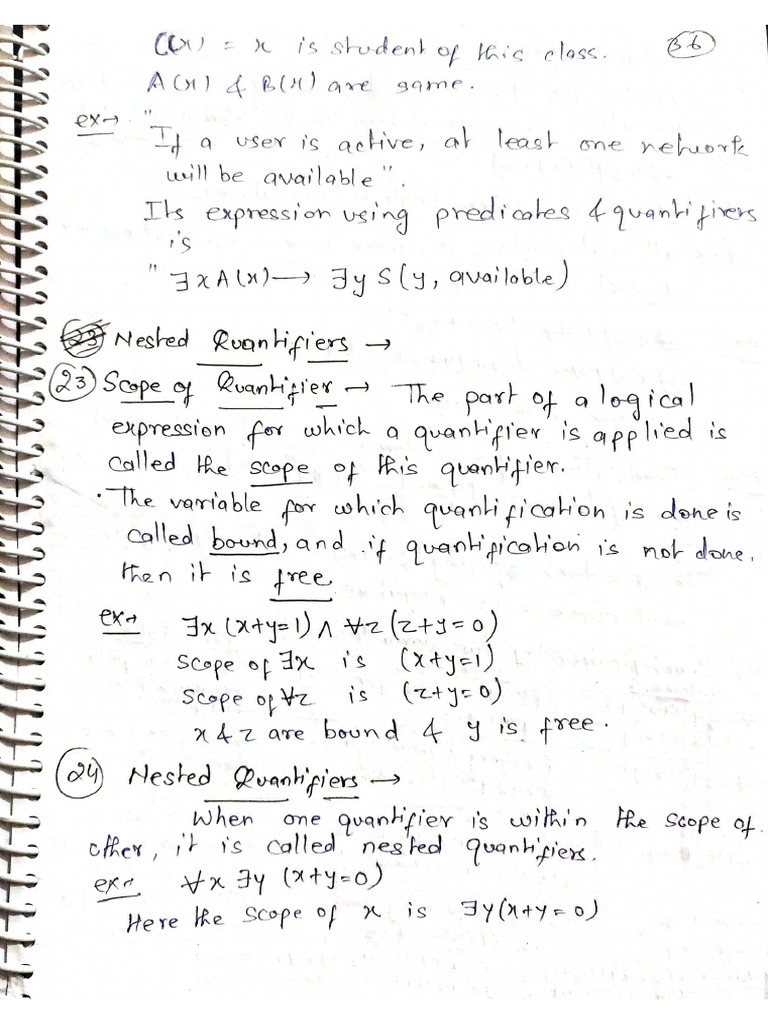 C(x) = x is student of this class.
36
A(x) & B(x) are same.
ex→ "If a user is active, at least one network
will be available".
Its expression using predicates & quantifirers
is
" ∃x A(x) → ∃y S(y, available)
23 Nested Quantifiers →
23 Scope of Quantifier → The part of a logical
expression for which a quantifier is applied is
called the scope of this quantifier.
• The variable for which quantification is done is
called bound, and if quantification is not done,
then it is free.
ex→ ∃x (x+y=1) ∧ ∀z (z+y=0)
Scope of ∃x is (x+y=1)
Scope of ∀z is (z+y=0)
x & z are bound & y is free.
24 Nested Quantifiers →
When one quantifier is within the scope of
other, it is called nested quantifiers.
ex→ ∀x ∃y (x+y=0)
Here the scope of x is ∃y(x+y=0)